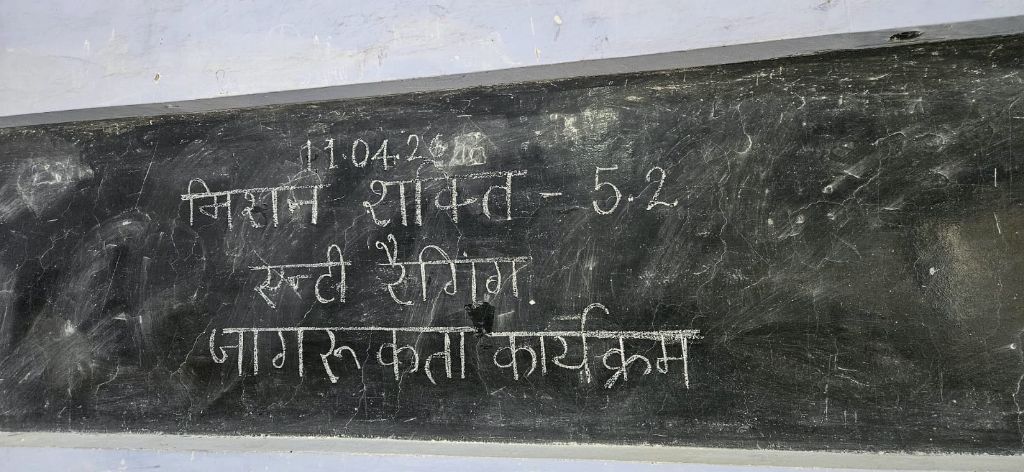 11.04.26
मिशन शक्ति - 5.2
एन्टी रैगिंग
जागरूकता कार्यक्रम